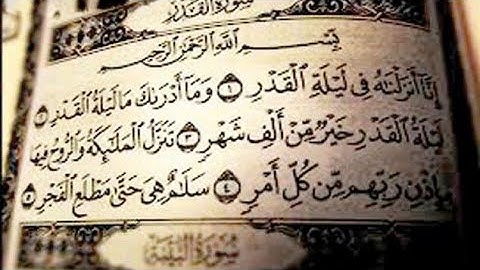 سُورَةُ القَدْرِ
بِسْمِ ٱللَّهِ ٱلرَّحْمَٰنِ ٱلرَّحِيمِ
إِنَّا أَنزَلْنَٰهُ فِى لَيْلَةِ ٱلْقَدْرِ ١ وَمَآ أَدْرَىٰكَ مَا لَيْلَةُ ٱلْقَدْرِ ٢
لَيْلَةُ ٱلْقَدْرِ خَيْرٌ مِّنْ أَلْفِ شَهْرٍ ٣ تَنَزَّلُ ٱلْمَلَٰٓئِكَةُ وَٱلرُّوحُ فِيهَا
بِإِذْنِ رَبِّهِم مِّن كُلِّ أَمْرٍ ٤ سَلَٰمٌ هِىَ حَتَّىٰ مَطْلَعِ ٱلْفَجْرِ ٥
سُورَةُ البَيِّنَةِ